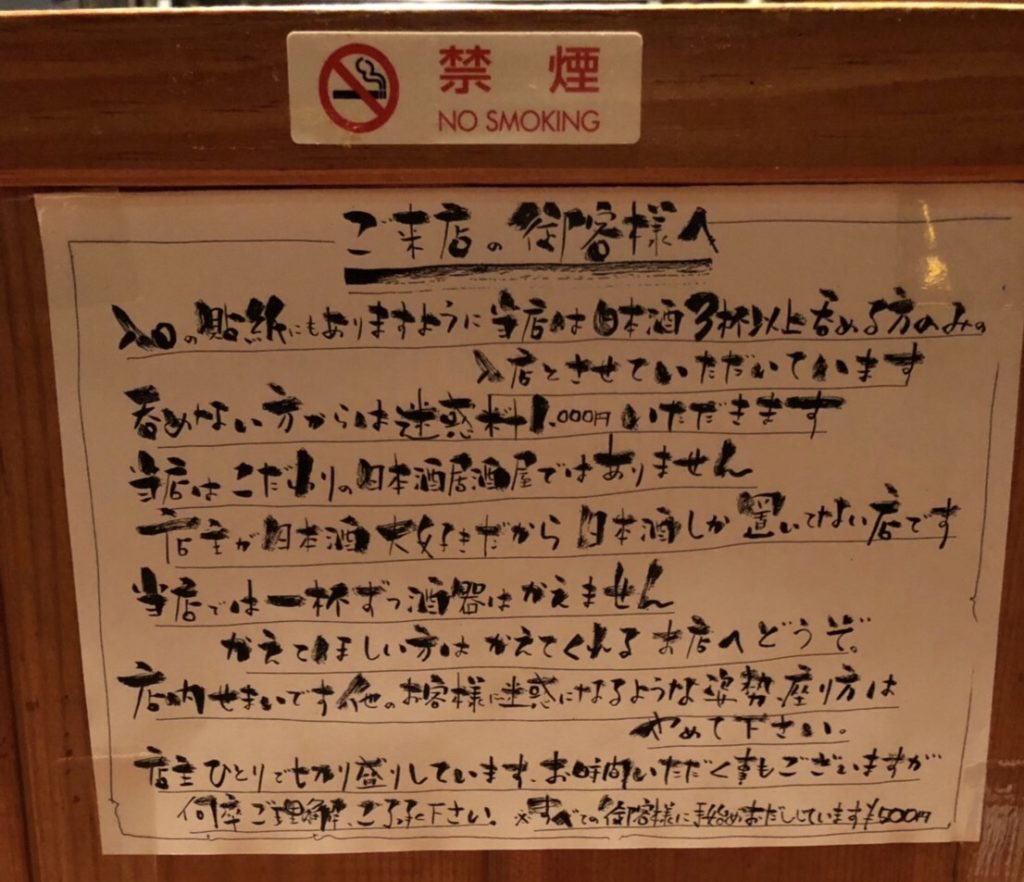 禁煙
NO SMOKING
ご来店の御客様へ
入口の貼紙にもありますように当店は日本酒3杯以上呑める方のみの
入店とさせていただいています
呑めない方からは迷惑料1.000円いただきます
当店はこだわりの日本酒居酒屋ではありません
店主が日本酒大好きだから日本酒しか置いてない店です
当店では一杯ずつ酒器はかえません
かえてほしい方はかえてくれるお店へどうぞ。
店内せまいです他のお客様に迷惑になるような姿勢、座り方は
やめて下さい。
店主ひとりで切り盛りしています、お時間いただく事もございますが
何卒ご理解、ご了承下さい。 ※すべての御客様に手始めおだししています¥500円